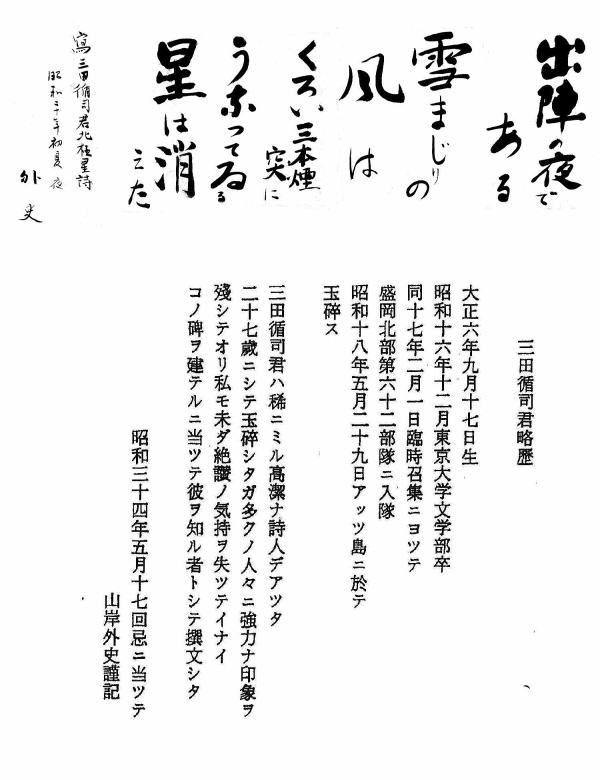 出陣の夜で
ある
雪まじりの
風は
くろい三本煙
突に
うなってゐる
星は消
えた
寫三田循司君北極星詩
昭和三十年初夏夜
外史
三田循司君略歴
大正六年九月十七日生
昭和十六年十二月東京大学文学部卒
同十七年二月一日臨時召集ニヨツテ
盛岡北部第六十二部隊ニ入隊
昭和十八年五月二十九日アッツ島ニ於テ
玉碎ス
三田循司君ハ稀ニミル高潔ナ詩人デアツタ
二十七歳ニシテ玉碎シタガ多クノ人々ニ強力ナ印象ヲ
殘シテオリ私モ未ダ絶讃ノ気持ヲ失ツテイナイ
コノ碑ヲ建テルニ当ツテ彼ヲ知ル者トシテ撰文シタ
昭和三十四年五月十七回忌ニ当ツテ
山岸外史謹記